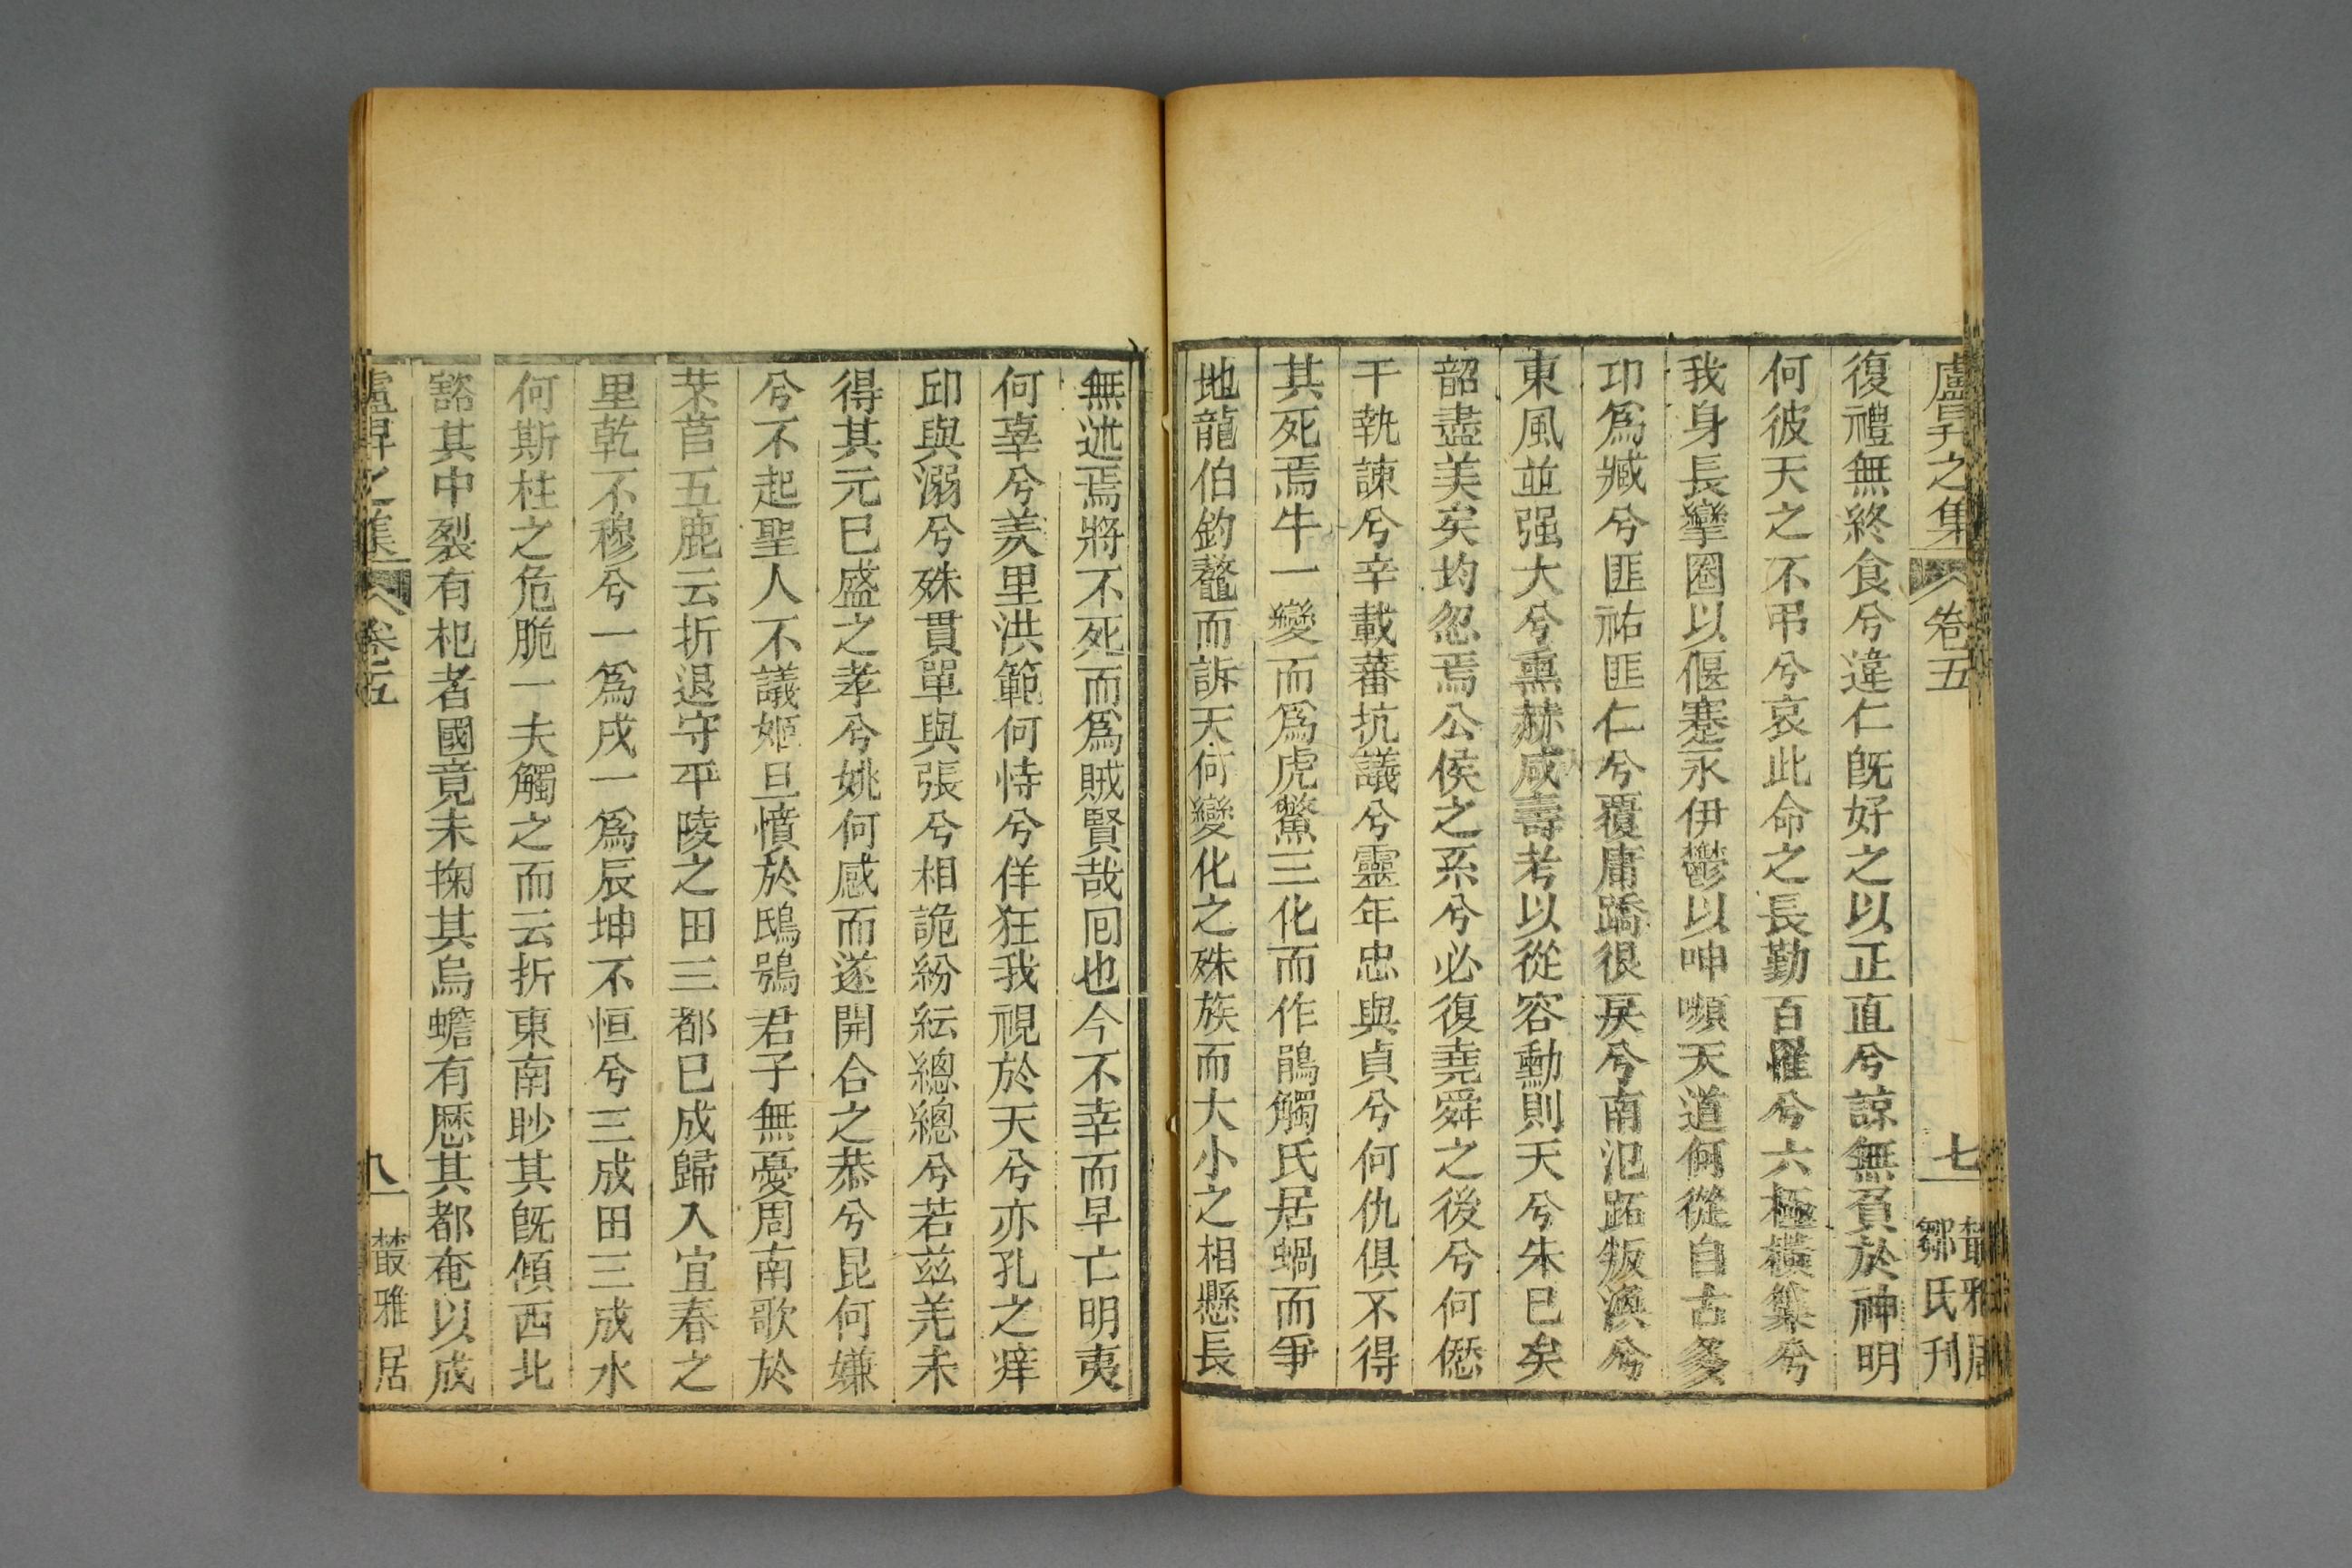 盧昇之集 卷五 七 叢雅居 鄒氏刊
復禮無終食兮違仁旣好之以正直兮諒無負於神明
何彼天之不弔兮哀此命之長勤百罹兮六極橫集兮
我身長攣圈以偃蹇永伊鬱以呻嚬天道何從自古多
卭爲臧兮匪祐匪仁兮覆庸蹻很戾兮南氾跖叛渙兮
東風並强大兮熏赫咸壽考以從容勳則天兮朱已矣
韶盡美矣均忽焉公侯之系兮必復堯舜之後兮何愆
干執諫兮辛載蕃抗議兮靈年忠與貞兮何仇俱不得
其死焉牛一變而爲虎鱉三化而作鵑觸氏居蝸而爭
地龍伯釣鼇而訴天何變化之殊族而大小之相懸長
無述焉將不死而爲賊賢哉囘也今不幸而早亡明夷
何辜兮羑里洪範何恃兮佯狂我視於天兮亦孔之痒
邱與溺兮殊貫單與張兮相詭紛紜總總兮若兹羌未
得其元已盛之孝兮姚何感而遂開合之恭兮昆何嫌
兮不起聖人不議姬旦憤於鴟鴞君子無憂周南歌於
芣苢五鹿云折退守平陵之田三都已成歸入宜春之
里乾不穆兮一爲戌一爲辰坤不恒兮三成田三成水
何斯柱之危脆一夫觸之而云折東南眇其旣傾西北
豁其中裂有杞者國竟未掬其烏蟾有歷其都奄以成
盧昇之集 卷五 八 叢雅居